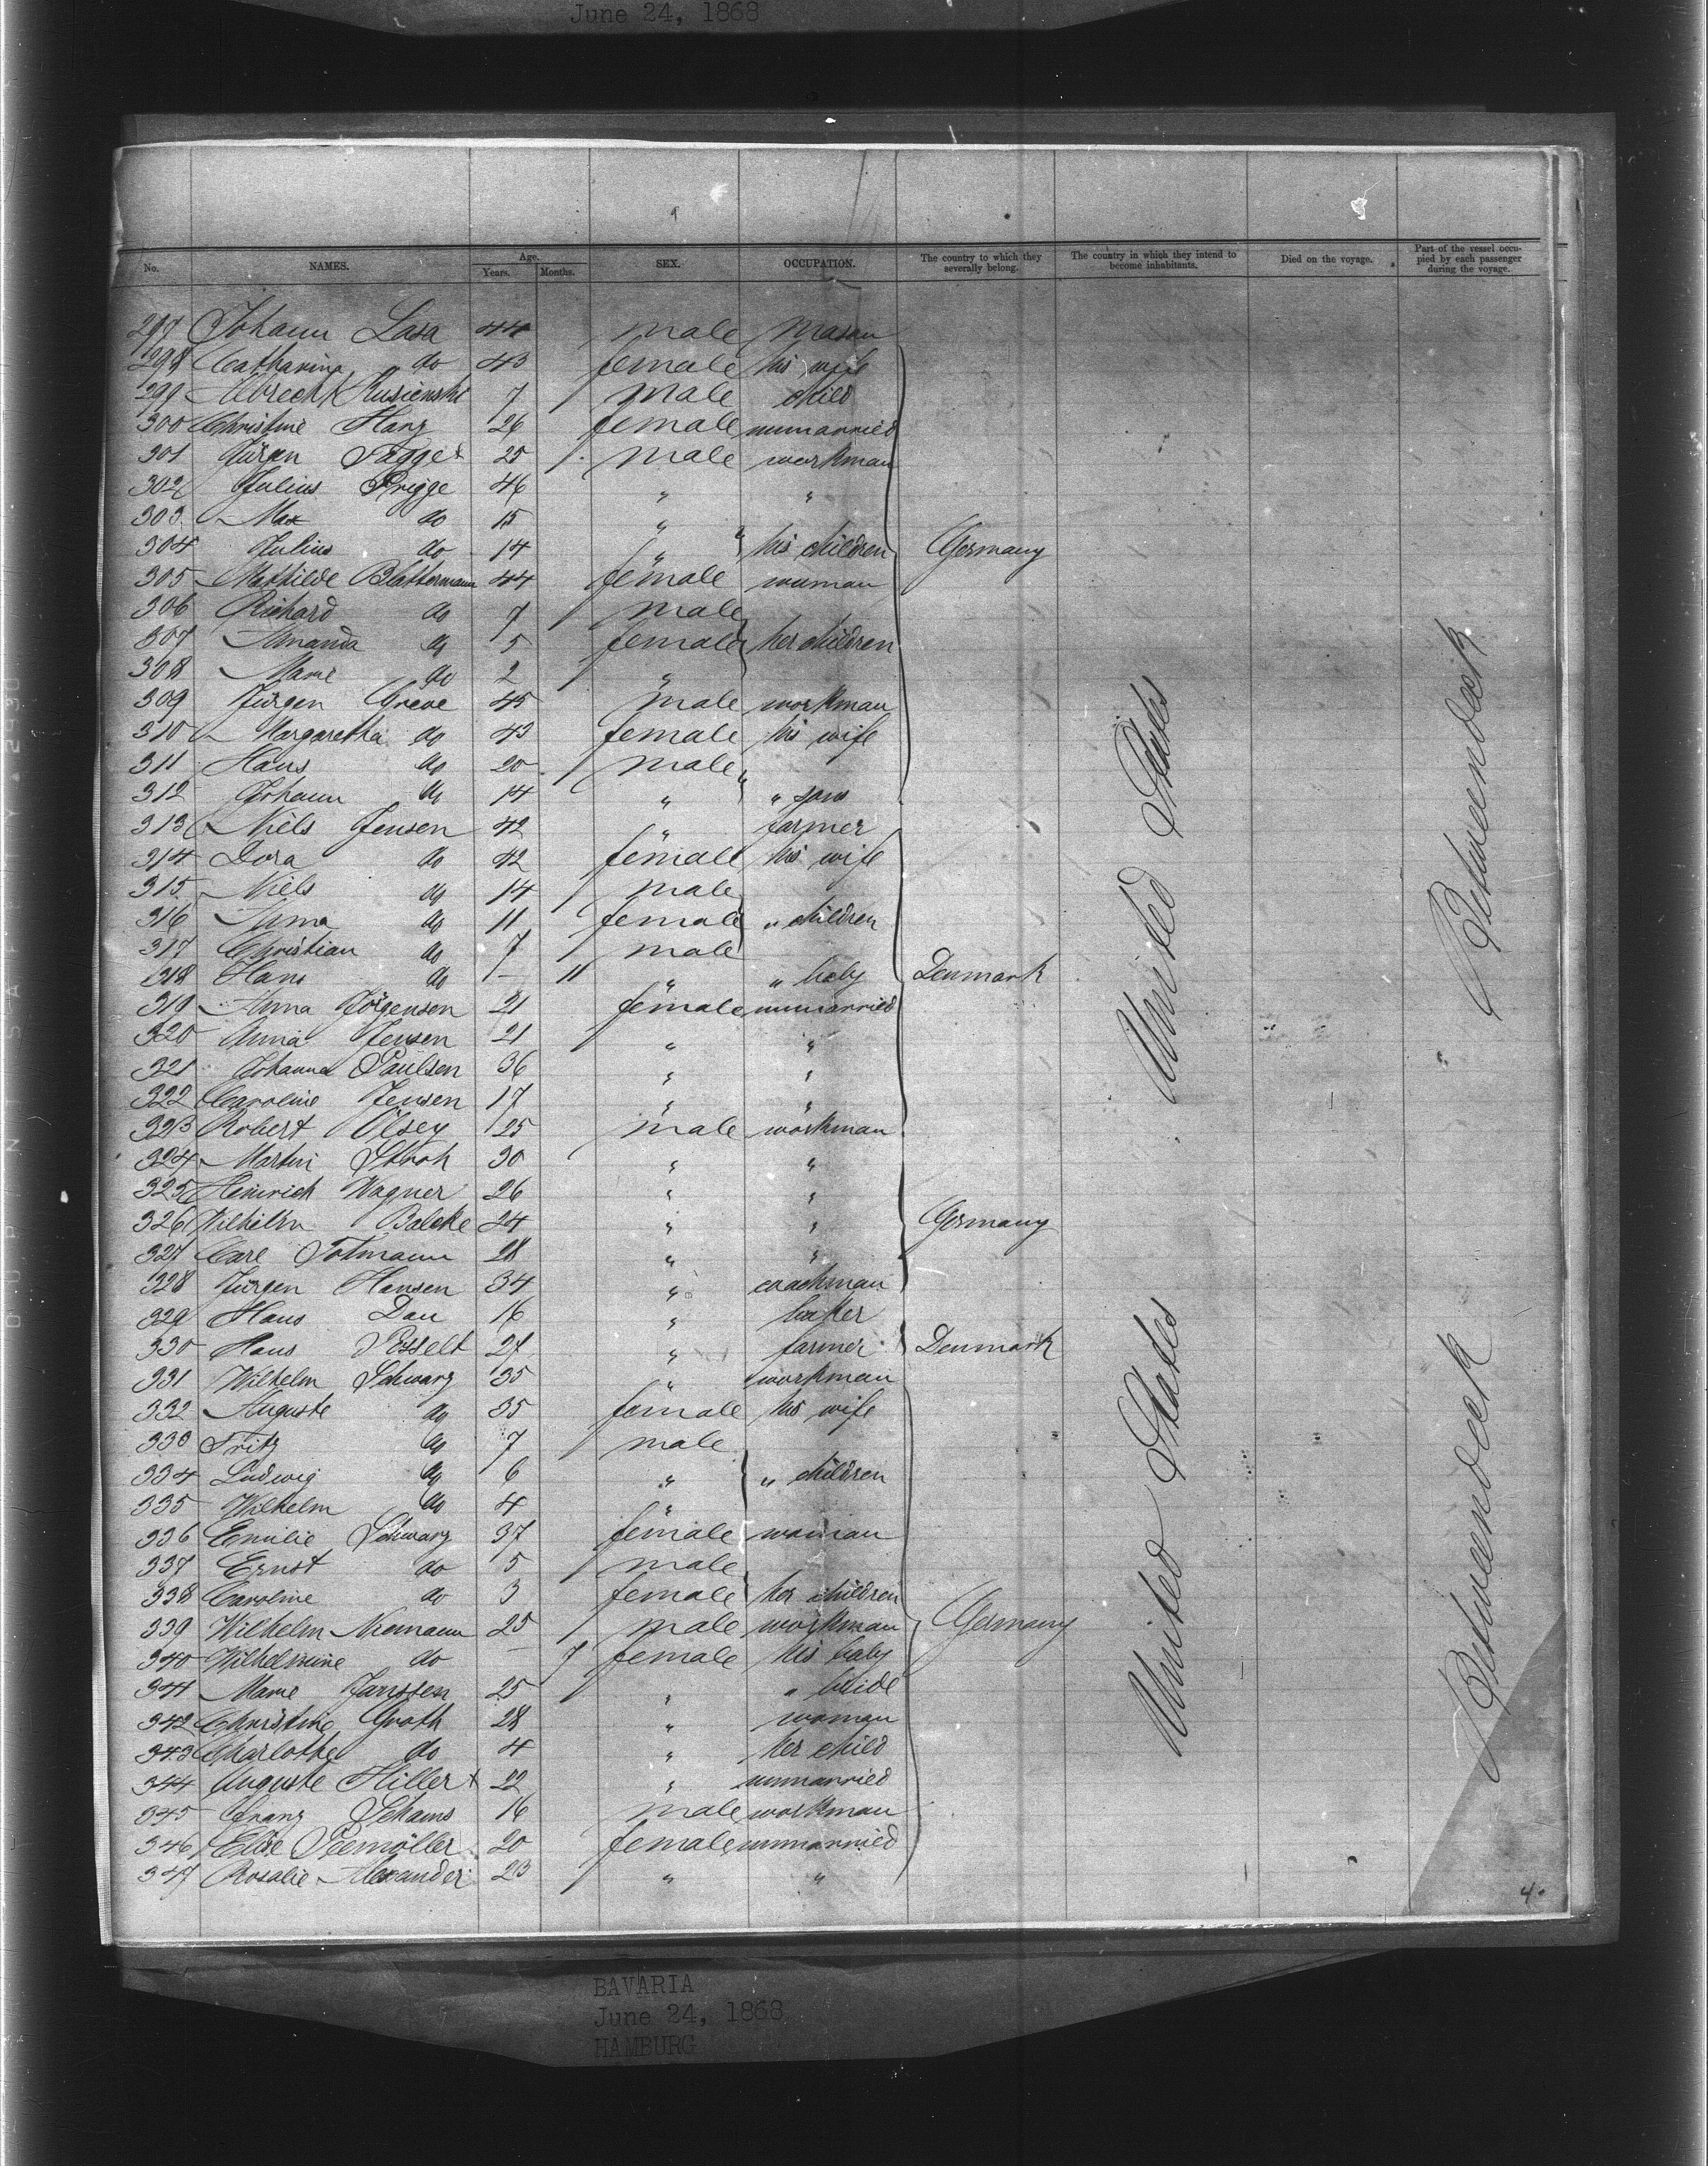 June 24, 1868
No. NAMES. Age. Years. Months. SEX. OCCUPATION. The country to which they severally belong. The country in which they intend to become inhabitants. Died on the voyage. Part of the vessel occupied by each passenger during the voyage.
297 Johann Lasa 44 male mason
298 Catharina do 43 female his wife
299 Albrecht Rusienski 7 male child
300 Christine Harz 26 female unmarried
301 Jürgen 25 male workman
302 Julius Prigge 46 " "
303 Max do 15 "
304 Julius do 14 " his children Germany
305 Mathilde Blattermann 44 female woman
306 Richard do 7 male
307 Amanda do 5 female her children
308 Marie do 2 "
309 Jürgen Greve 45 male workman
310 Margaretha do 43 female his wife
311 Hans do 20 male
312 Johann do 14 " " sons
313 Niels Jensen 42 " farmer
314 Dora do 42 female his wife
315 Niels do 14 male
316 Anna do 11 female " children
317 Christian do 7 male
318 Hans do - 11 " " baby Denmark
319 Anna Jörgensen 21 female unmarried
320 Anna Jensen 21 " "
321 Johanna Paulsen 36 " "
322 Caroline Jensen 17 " "
323 Robert Olsey 25 male workman
324 Martin 30 " "
325 Heinrich Wagner 26 " "
326 Wilhelm Balcke 24 " " Germany
327 Carl Totmann 28 " "
328 Jürgen Hansen 34 " coachman
329 Hans Dau 16 " baker
330 Hans 27 " farmer Denmark
331 Wilhelm Schwarz 35 " workman
332 Auguste do 35 female his wife
333 Fritz do 7 male
334 Ludwig do 6 " " children
335 Wilhelm do 4 "
336 Emilie Schwarz 37 female woman
337 Ernst do 5 male
338 Caroline do 3 female her children
339 Wilhelm Niemann 25 male workman Germany
340 Wilhelmine do - 7 female his baby
341 Marie Janssen 25 " " bride
342 Christine Groth 28 " woman
343 Charlotte do 4 " her child
344 Auguste Hillert 22 " unmarried
345 Franz Schams 16 male workman
346 Elise Peemöller 20 female unmarried
347 Rosalie Alexander 23 " "
United States
Betweendeck
United States
Betweendeck
4.
BAVARIA
June 24, 1868
HAMBURG